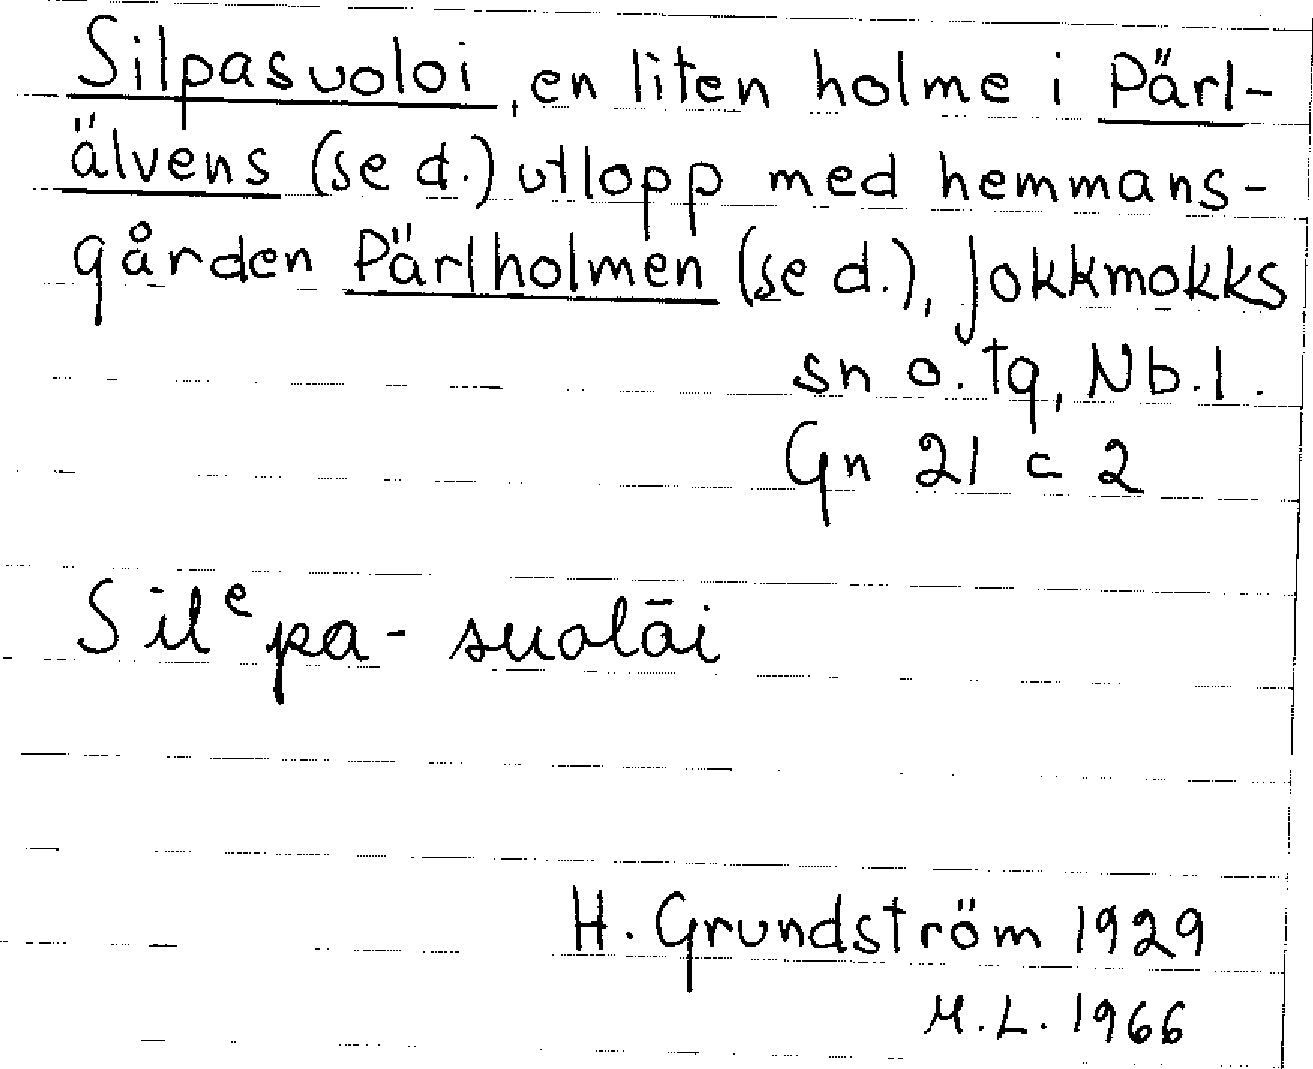 Silpasuoloi, en liten holme i Pärl-
älvens (se d.) utlopp med hemmans-
gården Pärlholmen (se d.), Jokkmokks
sn o. tg, Nb. l.
Gn 21 c 2
Silᵉpa-suolāi
H. Grundström 1929
M.L. 1966